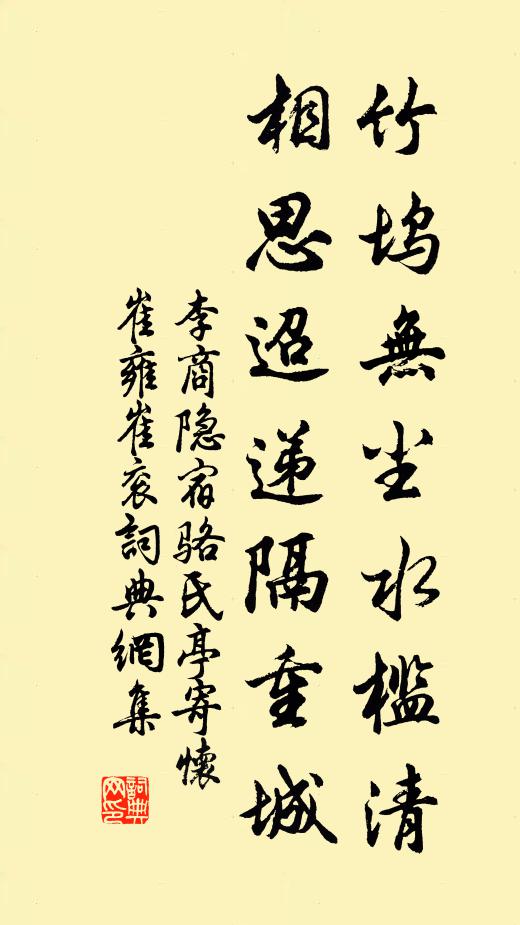 竹坞無尘水槛清
相思迢递隔重城
李商隐宿骆氏亭寄懷
崔雍崔衮詞典網集
詞典网印